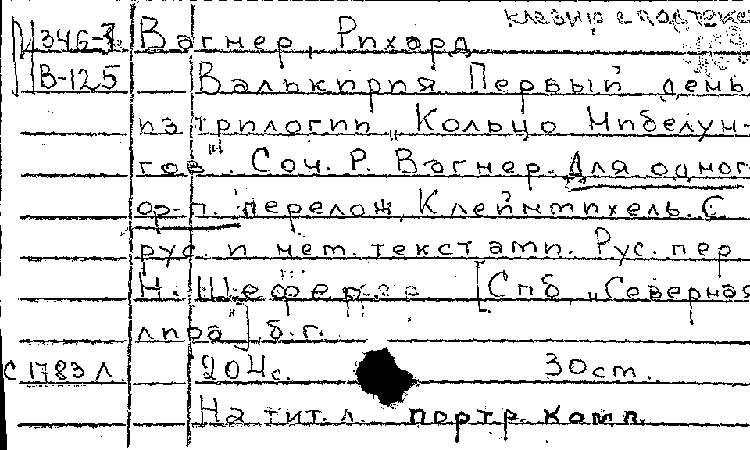 клавир с подтекс
Вагнер, Рихард
В-125 Валькирия Первый день
из трилогии „Кольцо Нибелун-
гов". Соч. Р. Вагнер. Для одног
ор-п. перелож. Клейнмихель. С
рус. и нем. текстами. Рус. пер
Н. [Спб, „Северная
лира"], б. г.
С 1783 л 204с. 30 cm.
На тит. л. портр. комп.